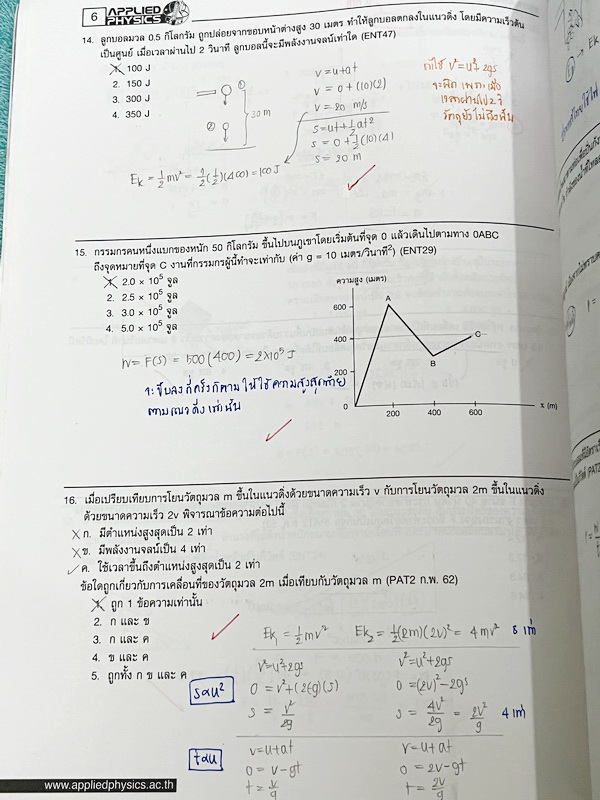 6 APPLIED PHYSICS
14. ลูกบอลมวล 0.5 กิโลกรัม ถูกปล่อยจากขอบหน้าต่างสูง 30 เมตร ทำให้ลูกบอลตกลงในแนวดิ่ง โดยมีความเร็วต้น
เป็นศูนย์ เมื่อเวลาผ่านไป 2 วินาที ลูกบอลนี้จะมีพลังงานจลน์เท่าใด (ENT47)
1. 100 J
2. 150 J
3. 300 J
4. 350 J
① ② 30 m
v = u+at
v = 0 + (10)(2)
v = 20 m/s
s = ut + ½at²
s = 0 + ½(10)(4)
s = 20 m
Ek = ½mv² = ½(½)(400) = 100 J
ถ้าใช้ v² = u²+2gs
จะผิด เพราะ เมื่อ
เวลาผ่านไป 2 วิ
วัตถุยังไม่ถึงพื้น
15. กรรมกรคนหนึ่งแบกของหนัก 50 กิโลกรัม ขึ้นไปบนภูเขาโดยเริ่มต้นที่จุด 0 แล้วเดินไปตามทาง 0ABC
ถึงจุดหมายที่จุด C งานที่กรรมกรผู้นี้ทำจะเท่ากับ (ค่า g = 10 เมตร/วินาที²) (ENT29)
1. 2.0 × 10⁵ จูล
2. 2.5 × 10⁵ จูล
3. 3.0 × 10⁵ จูล
4. 5.0 × 10⁵ จูล
W = F(s) = 500(400) = 2×10⁵ J
จะขึ้นลงกี่ครั้งก็ตาม ให้ใช้ความสูงสุดท้าย
ตามแนวดิ่งเท่านั้น
ความสูง (เมตร)
600
400
200
0
A
B
C
200 400 600 x (m)
16. เมื่อเปรียบเทียบการโยนวัตถุมวล m ขึ้นในแนวดิ่งด้วยขนาดความเร็ว v กับการโยนวัตถุมวล 2m ขึ้นในแนวดิ่ง
ด้วยขนาดความเร็ว 2v พิจารณาข้อความต่อไปนี้
ก. มีตำแหน่งสูงสุดเป็น 2 เท่า
ข. มีพลังงานจลน์เป็น 4 เท่า
ค. ใช้เวลาขึ้นถึงตำแหน่งสูงสุดเป็น 2 เท่า
ข้อใดถูกเกี่ยวกับการเคลื่อนที่ของวัตถุมวล 2m เมื่อเทียบกับวัตถุมวล m (PAT2 ก.พ. 62)
1. ถูก 1 ข้อความเท่านั้น
2. ก และ ข
3. ก และ ค
4. ข และ ค
5. ถูกทั้ง ก ข และ ค
Ek₁ = ½mv² Ek₂ = ½(2m)(2v)² = 4mv² 8 เท่า
s ∝ u²
v² = u²+2gs
0 = v²+(2(-g)(s)
s = v²/2g
v² = u²+2gs
0 = (2v)²-2gs
s = 4v²/2g = 2v²/g 4 เท่า
t ∝ u
v = u+at
0 = v-gt
t = v/g
v = u+at
0 = 2v-gt
t = 2v/g
www.appliedphysics.ac.th